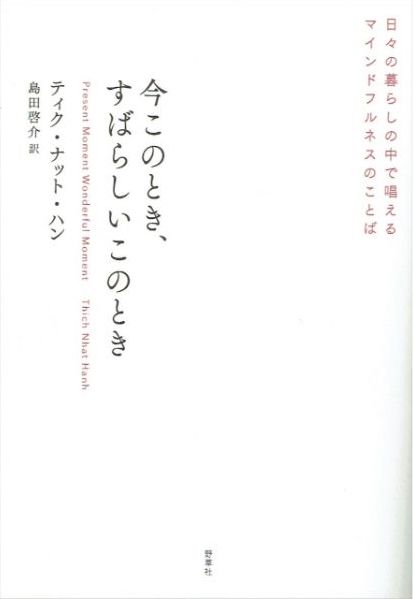 日々の暮らしの中で唱える
マインドフルネスのことば
今このとき、
すばらしいこのとき
Present Moment Wonderful Moment Thich Nhat Hanh
ティク・ナット・ハン
島田啓介 訳
野草社